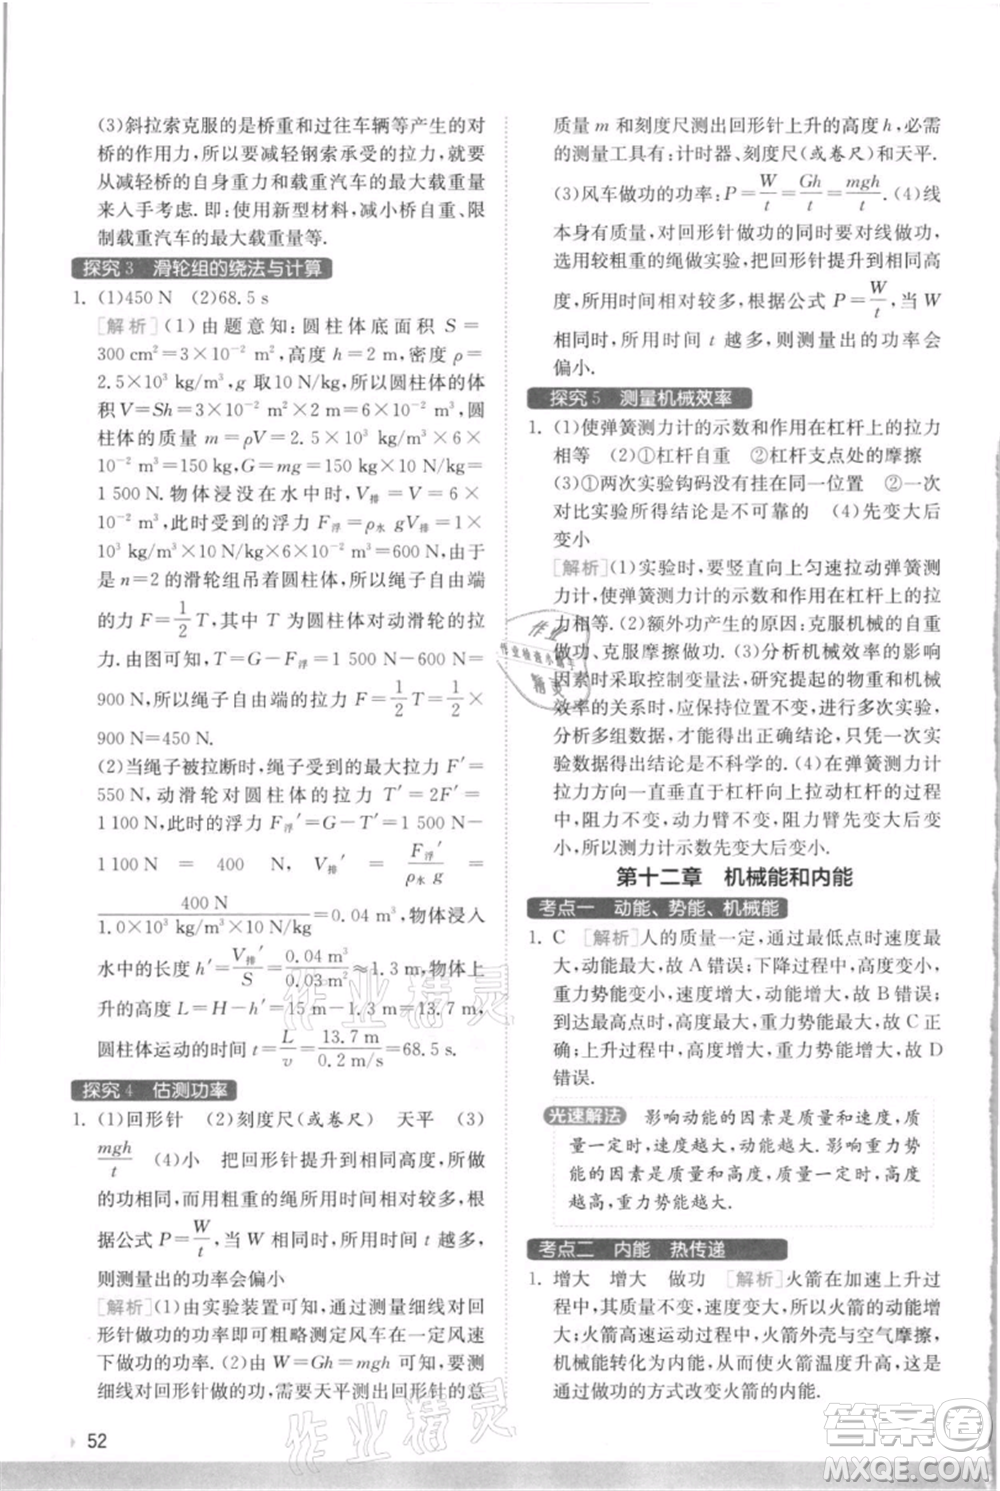 (3)斜拉索克服的是桥重和过往车辆等产生的对
桥的作用力,所以要减轻钢索承受的拉力,可以
从减轻桥的自身重力和载重汽车的最大载重量
来入手考虑.即:使用新型材料,减小桥自重、限
制载重汽车的最大载重量等.
探究3 滑轮组的绕法与计算
1. (1)450 N (2)68.5 s
[解析](1)由题意知:圆柱体底面积 S =
300 cm²=3×10⁻² m²,高度 h=2 m,密度 ρ=
2.5×10³ kg/m³,g 取10 N/kg,所以圆柱体的体
积V=Sh=3×10⁻²×2 m³=6×10⁻² m³,圆
柱体的质量 m=ρV=2.5×10³ kg/m³×6×
10⁻² m³=150 kg,G=mg=150 kg×10 N/kg=
1 500 N.物体浸没在水中时,V排=V=6×
10⁻² m³,此时受到的浮力 F浮=ρ水 gV排=1×
10³ kg/m³×10 N/kg×6×10⁻² m³=600 N,由于
是 n=2 的滑轮组吊着圆柱体,所以绳子自由端
的拉力 F=1/2 T,T 为圆柱体对动滑轮的拉
力.由图可知,T=G-F浮=1 500 N-600 N=
900 N,所以绳子自由端的拉力 F=1/2 T=1/2×
900 N=450 N.
(2)当绳子被拉断时,绳子承受的最大拉力 F′=
550 N,动滑轮对圆柱体的拉力 T′=2F′=
1 100 N,此时的浮力 F浮′=G-T′=1 500 N-
1 100 N = 400 N, V排′ = F浮′/ρ水 g =
400 N/1.0×10³ kg/m³×10 N/kg=0.04 m³,物体浸入
水中的长度 h′=V排′/S=0.04 m³/0.03 m²≈1.3 m,物体上
升的高度 L=H-h′=15 m-1.3 m=13.7 m,
圆柱体运动的时间 t=L/v=13.7 m/0.2 m/s=68.5 s.
探究4 估测功率
1. (1)回形针 (2)刻度尺(或卷尺) 天平 (3)
mgh/t (4)小 把回形针提升到相同高度,所做
的功相同,而用粗重的绳所用时间相对较多,根
据公式 P=W/t,当 W 相同时,时间 t 越多,
则测量出的功率会偏小
[解析](1)由实验装置可知,通过测量细线对回
形针做功的功率即可粗略测定风车在一定风速
下做功的功率.(2)由 W=Gh=mgh 可知,要测
细线对回形针做的功,需要天平测出回形针的总
质量 m 和刻度尺测出回形针上升的高度 h,必需
的测量工具有:计时器、刻度尺(或卷尺)和天平.
(3)风车做功的功率:P=W/t=Gh/t=mgh/t.(4)线
本身有质量,对回形针做功的同时对线做功,若
使用较粗重的绳,把回形针提升到相同高
度,所用时间相对较多,根据公式 P=W/t,当
W 相同时,所用时间 t 越多,则测量出的功率会
偏小.
探究5 测量机械效率
1. (1)使弹簧测力计的示数和作用在杠杆上的拉力
相等 (2)①杠杆自重 ②杠杆支点处的摩擦
(3)①两次实验钩码没有挂在同一位置 ②一次
对比实验所得结论是不可靠的 (4)先变大后
变小
[解析](1)实验时,要竖直向上匀速拉动弹簧测
力计,使弹簧测力计的示数和作用在杠杆上的拉
力相等.(2)额外功产生的原因:克服机械的自重
做功、克服摩擦做功.(3)分析机械效率的影响
因素时采取控制变量法,研究提起的物重和机械
效率的关系时,应保持位置不变,进行多次实验,
分析多组数据,才可以得出正确结论,只凭一次
实验数据得出结论是不科学的.(4)在弹簧测力计
拉力方向一直垂直于杠杆拉动杠杆的过程
中,阻力不变,动力臂不变,阻力臂先变大后变
小,所以测力计示数先变大后变小.
第十二章 机械能和内能
考点一 动能、势能、机械能
1. C [解析]人的质量一定,通过最低点时速度最
大,动能最大,故 A 错误;下降过程中,高度变小,
重力势能变小,速度增大,动能增大,故 B 错误;
达到最高点时,高度最大,重力势能最大,故 C正
确;离最高点时,高度增大,重力势能增大,故 D
错误.
光速解法 影响动能的因素是质量和速度,质
量一定时,速度越大,动能越大.影响重力势
能的因素是质量和高度,质量一定时,高度
越高,重力势能越大.
考点二 内能 热传递
1. 增大 增大 做功 [解析]火箭在加速上升过程
中,其质量不变,速度变大,所以火箭的动能增
大;火箭高速运动过程中,火箭外壳与空气摩擦,
机械能转化为内能,从而使火箭温度升高,内能增
大,这是通过做功的方式改变火箭的内能.
52
作业精灵
作业精灵
答案圈
MXQE.COM